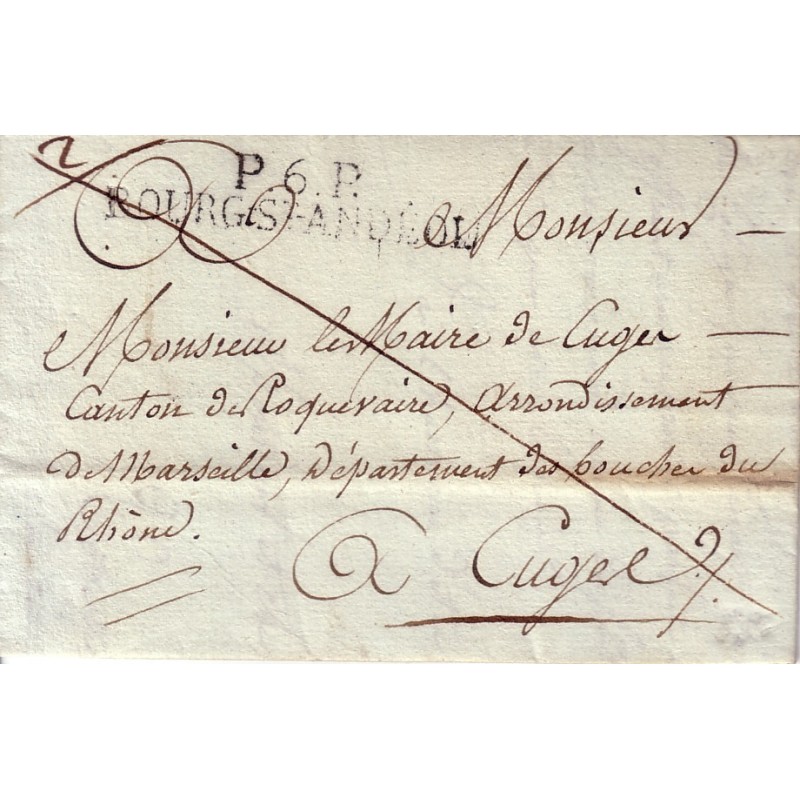 P. 6. P.
BOURG-ST-ANDÉOL
Monsieur
Monsieur le Maire de Cuges
Canton de Roquevaire, Arrondissement
De Marseille, Département des bouches du
Rhône.
A Cuges